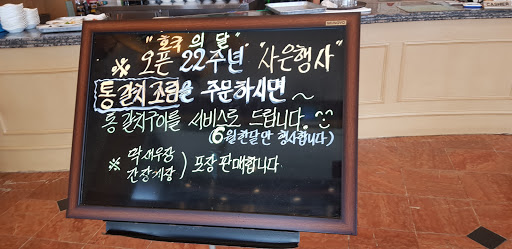 "호국의 달"
※ 오픈 22주년 "사은행사"
통갈치조림을 주문하시면 ~
통갈치구이를 서비스로 드립니다.
(6월한달만 행사합니다)
※ 막새우장
간장게장 ) 포장판매합니다
CASHIER